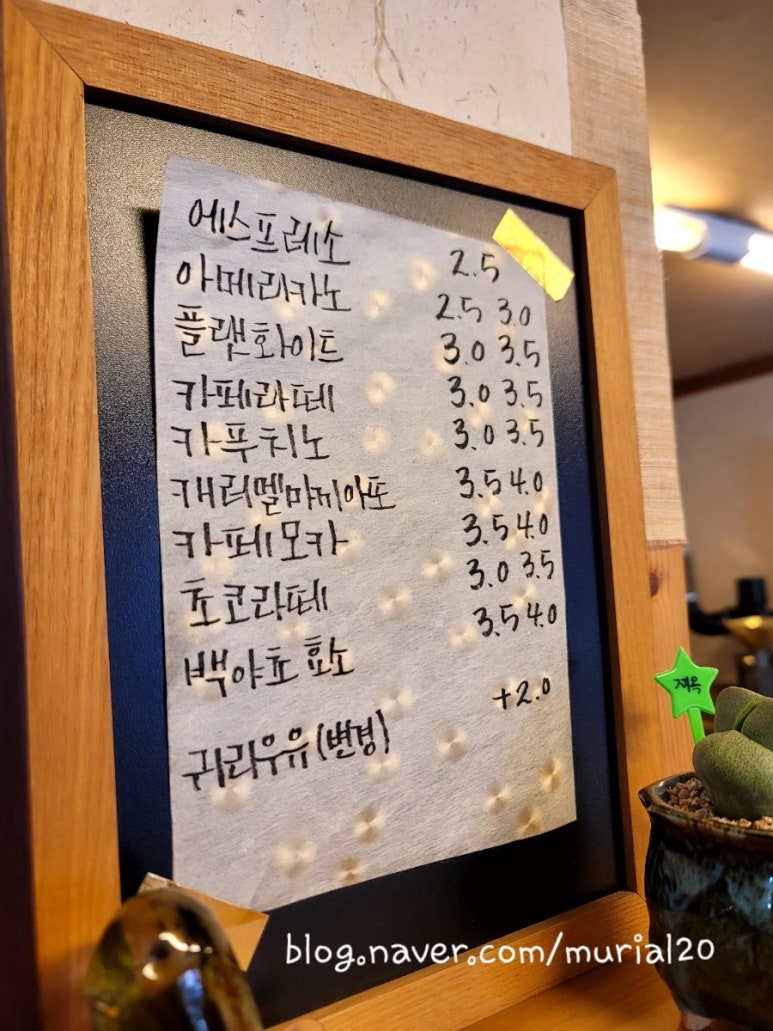 에스프레소 2.5
아메리카노 2.5 3.0
플랫화이트 3.0 3.5
카페라떼 3.0 3.5
카푸치노 3.0 3.5
캐러멜마끼아또 3.5 4.0
카페모카 3.5 4.0
쵸코라떼 3.0 3.5
백야초 효소 3.5 4.0
귀리우유(변경) +2.0
blog.naver.com/murial20